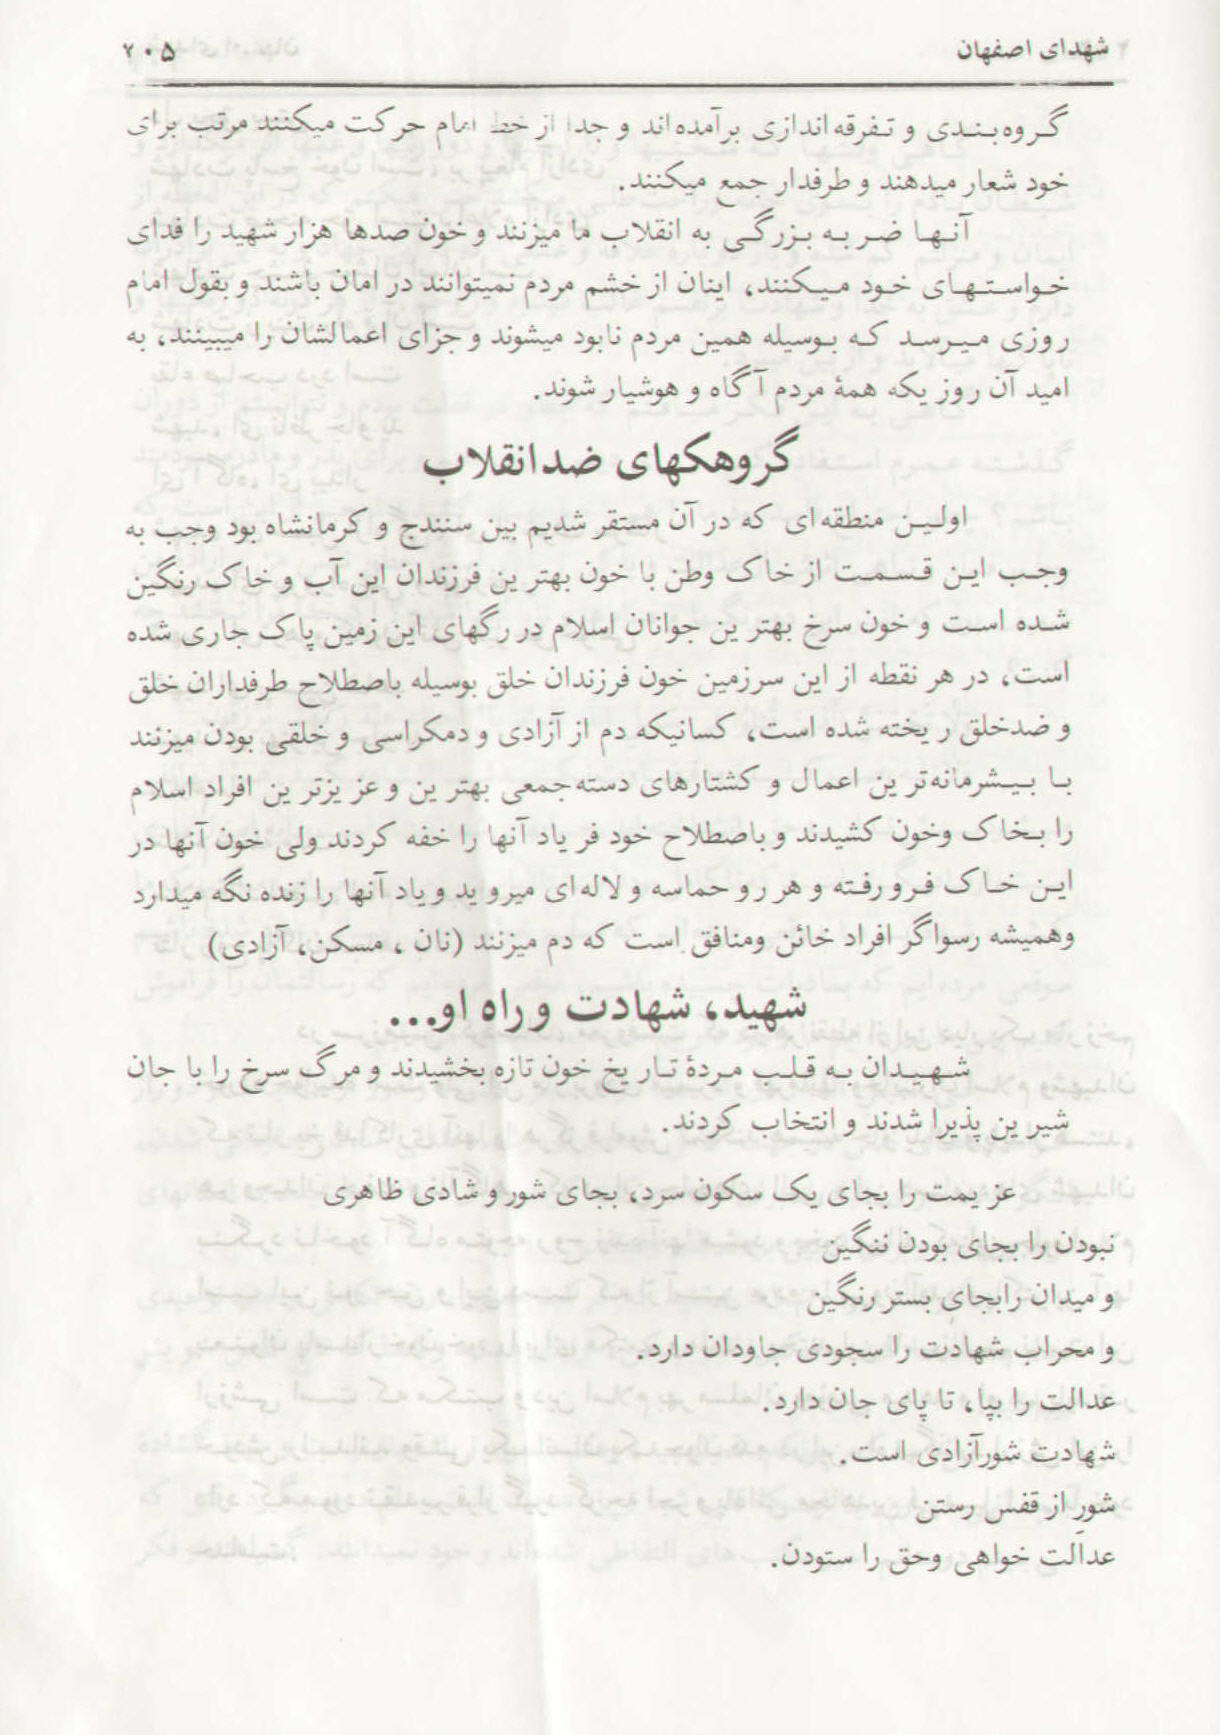 شهدای اصفهان
۲۰۵
گروه‌بندی و تفرقه‌اندازی برآمده‌اند و جدا از خط امام حرکت میکنند مرتب برای
خود شعار میدهند و طرفدار جمع میکنند.
آنها ضربه بزرگی به انقلاب ما میزنند و خون صدها هزار شهید را فدای
خواستهای خود میکنند، اینان از خشم مردم نمیتوانند در امان باشند و بقول امام
روزی میرسد که بوسیله همین مردم نابود میشوند و جزای اعمالشان را میبینند، به
امید آن روزیکه همهٔ مردم آگاه و هوشیار شوند.
گروهکهای ضدانقلاب
اولین منطقه‌ای که در آن مستقر شدیم بین سنندج و کرمانشاه بود وجب به
وجب این قسمت از خاک وطن با خون بهترین فرزندان این آب و خاک رنگین
شده است و خون سرخ بهترین جوانان اسلام در رگهای این زمین پاک جاری شده
است، در هر نقطه از این سرزمین خون فرزندان خلق بوسیله باصطلاح طرفداران خلق
و ضدخلق ریخته شده است، کسانیکه دم از آزادی و دمکراسی و خلقی بودن میزنند
با بیشرمانه‌ترین اعمال و کشتارهای دسته‌جمعی بهترین و عزیزترین افراد اسلام
را بخاک وخون کشیدند و باصطلاح خود فریاد آنها را خفه کردند ولی خون آنها در
این خاک فرو رفته و هر رو حماسه و لاله‌ای میروید و یاد آنها را زنده نگه میدارد
وهمیشه رسواگر افراد خائن ومنافق است که دم میزنند (نان ، مسکن، آزادی)
شهید، شهادت و راه او...
شهیدان به قلب مردهٔ تاریخ خون تازه بخشیدند و مرگ سرخ را با جان
شیرین پذیرا شدند و انتخاب کردند.
عزیمت را بجای یک سکون سرد، بجای شور و شادی ظاهری
نبودن را بجای بودن ننگین
و میدان رابجای بستر رنگین
و محراب شهادت را سجودی جاودان دارد.
عدالت را بپا، تا پای جان دارد.
شهادت شورآزادی است.
شورِ از قفس رستن
عدالت خواهی وحق را ستودن.